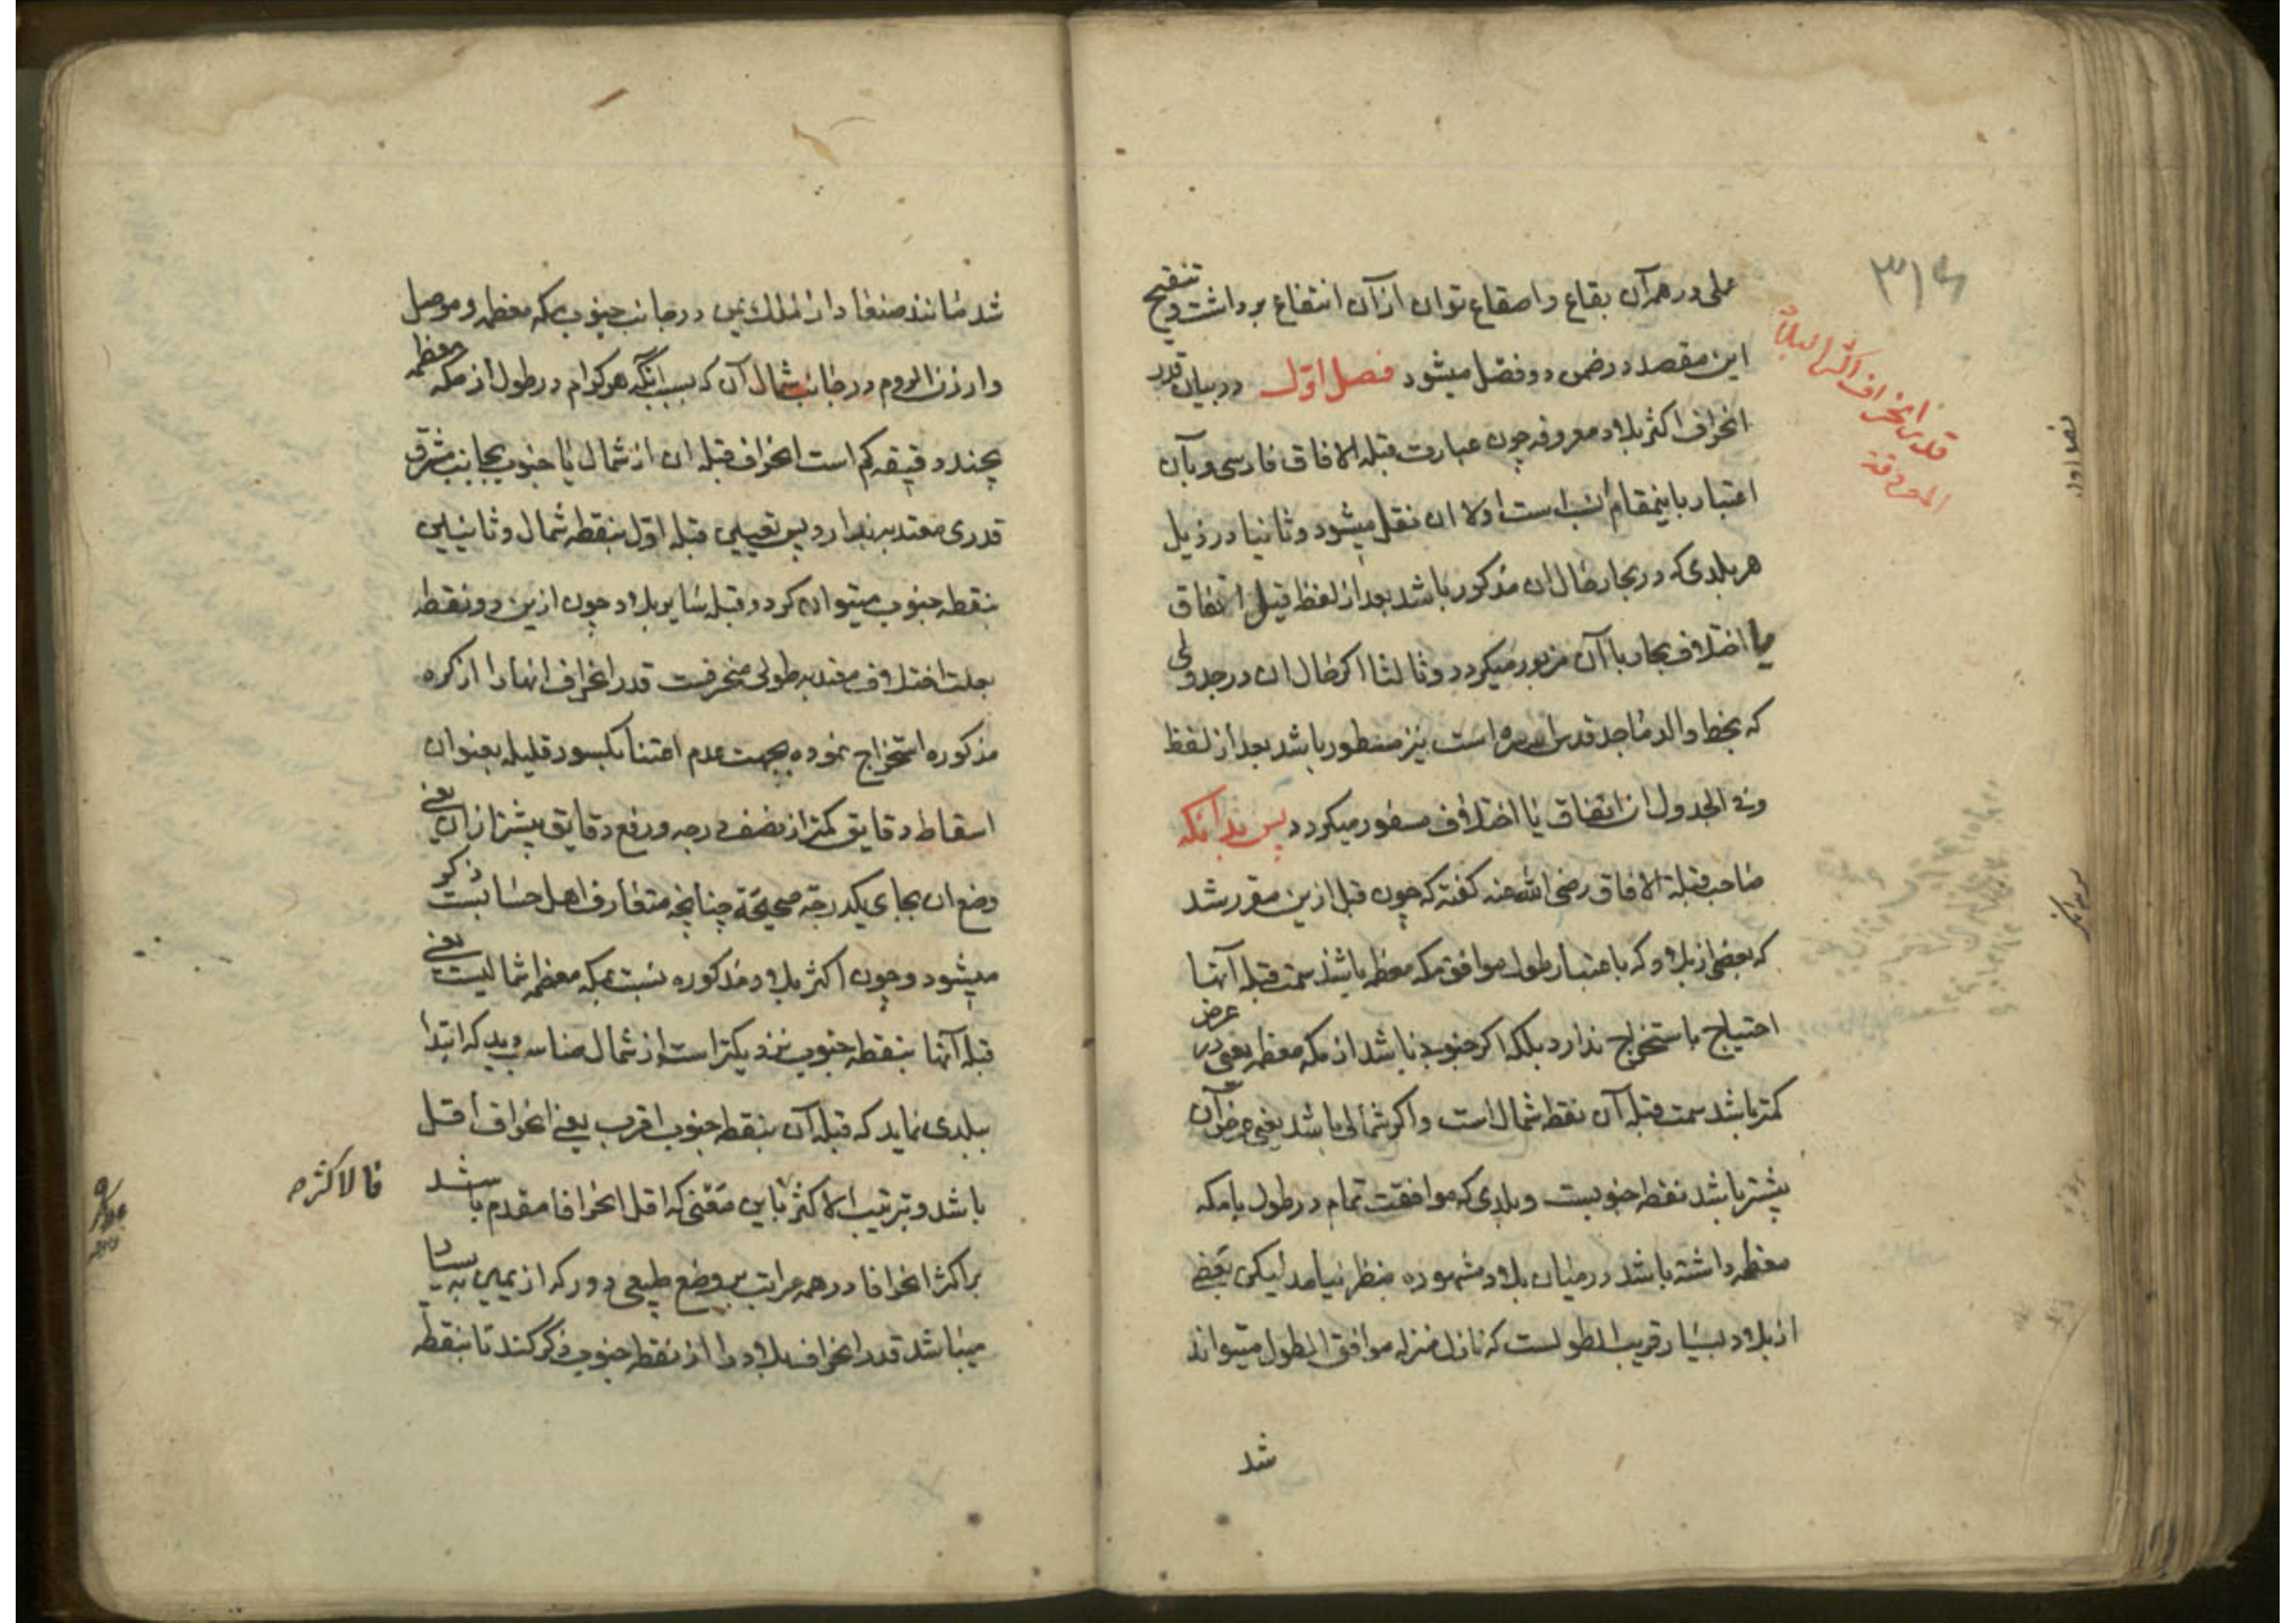 ۳۱۶
قدر انحراف اکثر البلاد
المعروفة
علی در همه آن بقاع و اصقاع توان ازان انتفاع برداشت و تنقیح
این مقصد در ضمن دو فصل میشود فصل اول در بیان قدر
انحراف اکثر بلاد معروفه چون عبارت قبله الافاق فارسی و بآن
اعتبار باینمقام انسب است اولا ان نقل میشود و ثانیا در ذیل
هر بلدی که در بحار حال ان مذکور باشد بعد از لفظ قیل اتفاق
یا اختلاف بحار با آن مزبور میکردد و ثالثا اکر حال ان در جدولی
که بخط والد ماجد قدس سره است نیز مسطور باشد بعد از لفظ
وفی الجدول ان اتفاق یا اختلاف مسفور میکردد پس بدانکه
صاحب قبلة الافاق رضی الله عنه کفته که چون قبل ازین مقرر شد
که بعضی از بلاد که باعتبار طول موافق مکه معظمه باشند سمت قبله آنها
احتیاج باستخراج ندارد بلکه اکر جنوبی باشد از مکه معظمه یعنی در عرض
کمتر باشد سمت قبله آن نقطه شمال است و اکر شمالی باشد یعنی عرض آن
بیشتر باشد نقطه جنوبست و بلدی که موافقت تمام در طول با مکه
معظمه داشته باشد در میان بلاد مشهوره بنظر نیامد لیکن بعضی
از بلاد بسیار قریب الطولست که نازل منزله موافق الطول میتواند
شد
شد مانند صنعا دار الملک یمن در جانب جنوب مکه معظمه و موصل
و ارزن الروم در جانب شمال آن که بسبب انکه هر کدام در طول از مکه معظمه
بچند دقیقه کم است انحراف قبله ان از شمال یا جنوب بجانب مشرق
قدری معتد به ندارد پس تعیین قبله اول بنقطه شمال و ثانیین
بنقطه جنوب میتوان کرد و قبله سایر بلاد چون ازین دو نقطه
بعلت اختلاف معتد به طولی منحرفست قدر انحراف انها را از کره
مذکوره استخراج نموده بجهت عدم اعتنا بکسور قلیله بعنوان
اسقاط دقایق کمتر از نصف درجه و رفع دقایق بیشتر ازان یعنی
وضع ان بجای یکدرجه صحیحة چنانچه متعارف اهل حسابست ذکر
میشود و چون اکثر بلاد مذکوره نسبت بمکه معظمه شمالیست یعنی
قبله آنها بنقطه جنوب نزدیکتر است از شمال مناسب دید که ابتدا
ببلدی نماید که قبله آن بنقطه جنوب اقرب یعنی انحراف اقل
باشد و ترتیب الاکثر باین معنی که اقل انحرافا مقدم باشد
فالاکثر
بر اکثر انحرافا در همه مراتب بر وضع طبیعی دور که از یمین به یسار
میباشد قدر انحراف بلاد را از نقطه جنوب ذکر کند تا بنقطه